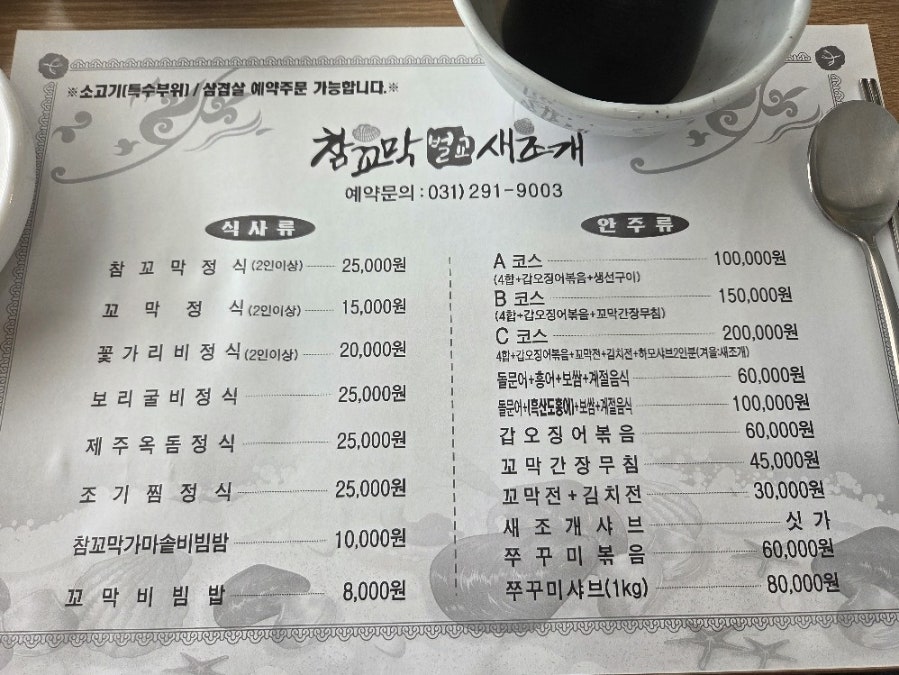 ※소고기(특수부위) / 삼겹살 예약주문 가능합니다.※
참꼬막 벌교 새조개
예약문의 : 031) 291-9003
식사류
참꼬막정식(2인이상) 25,000원
꼬막정식(2인이상) 15,000원
꽃가리비정식(2인이상) 20,000원
보리굴비정식 25,000원
제주옥돔정식 25,000원
조기찜정식 25,000원
참꼬막가마솥비빔밥 10,000원
꼬막비빔밥 8,000원
안주류
A 코스 100,000원
(4합+갑오징어볶음+생선구이)
B 코스 150,000원
(4합+갑오징어볶음+꼬막간장무침)
C 코스 200,000원
4합+갑오징어볶음+꼬막전+김치전+하모샤브2인분(겨울:새조개)
돌문어+홍어+보쌈+계절음식 60,000원
돌문어+(흑산도홍어)+보쌈+계절음식 100,000원
갑오징어볶음 60,000원
꼬막간장무침 45,000원
꼬막전+김치전 30,000원
새조개샤브 싯가
쭈꾸미볶음 60,000원
쭈꾸미샤브(1kg) 80,000원